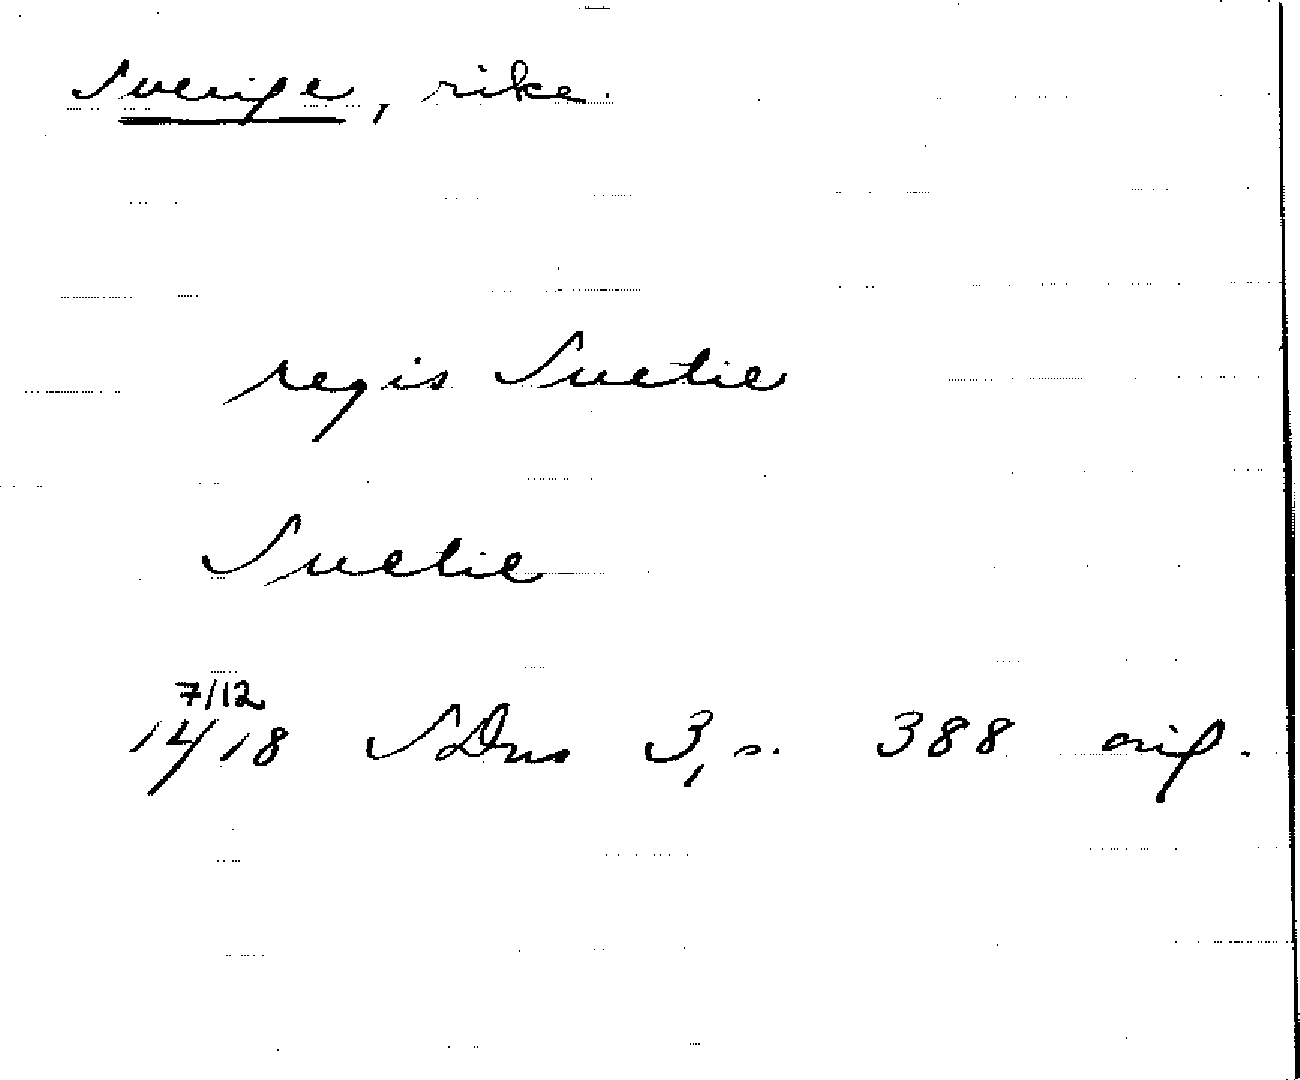 Sverige, rike.
regis Suetie
Suetie
7/12
14/18 SDns 3, s. 388 orig.